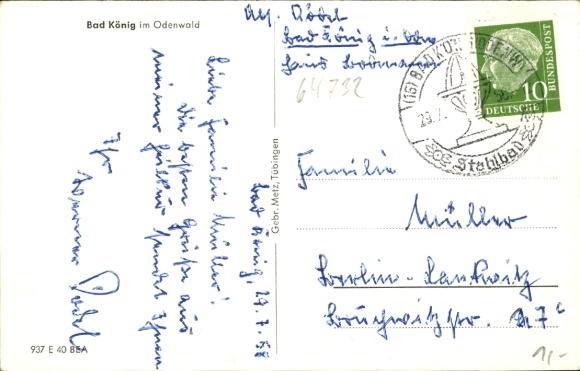 Bad König im Odenwald
Abs. Dödel
Bad König i. Odw.
Haus
64732
(16) BAD KÖNIG (ODENW)
29.7.
Stahlbad
DEUTSCHE BUNDESPOST
10
Familie
Müller
Berlin-Lankwitz
Bruchwitzstr. 7c
1,-
Bad König, 29.7.58
Liebe Familie Müller!
Die besten Grüße aus
meiner sendet Ihnen
Ihr
Werner Dödel
Gebr. Metz, Tübingen
937 E 40 BEA